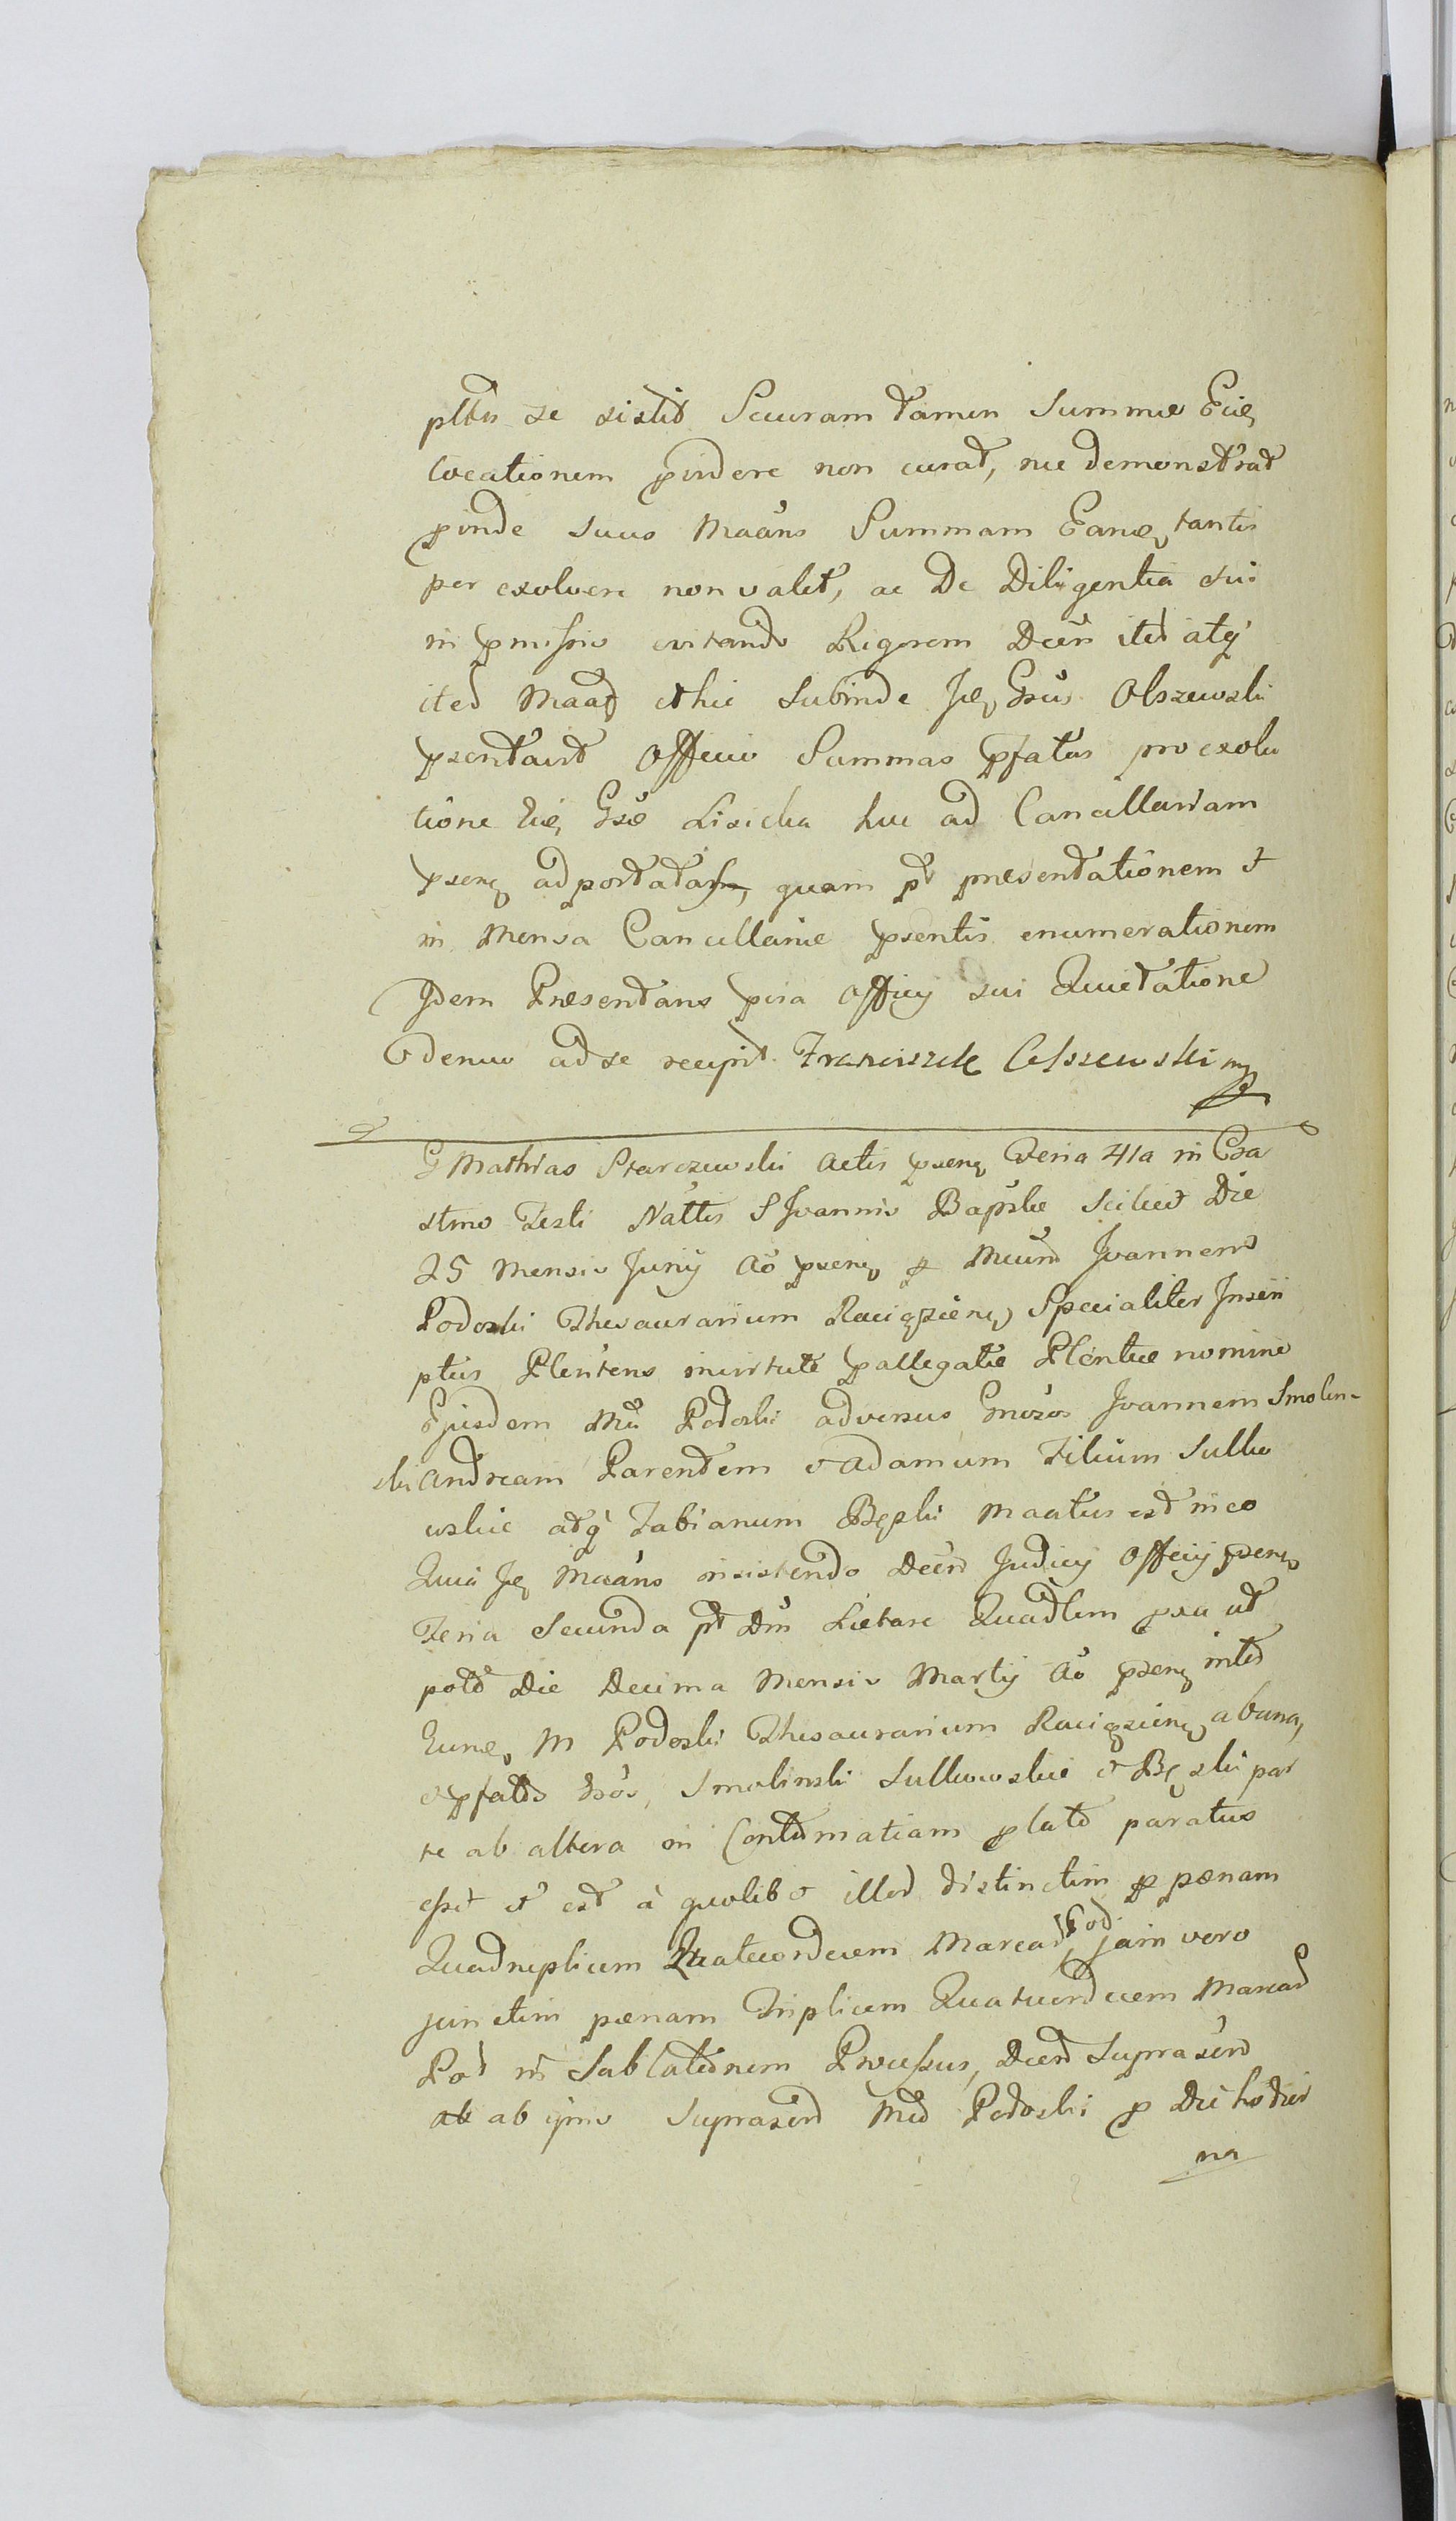 se sistit Securam tamen Summæ Eiē
locationem pvidere non curat, nec demonstrat
pinde suus Maans Summam Eanđ tantis
per exolvere non valet, ac De Diligentia sui
in pmissis evitando Rigorem Decři itđ atq
itđ Maađ et hic Subinde Jđ Gsus Olszewski
psentavit Officio Summas pfatas pro exolu
tione Eiē Gsæ Lisicka huc ad Cancellariam
psenđ adportatas, quam pt præsentationem et
in Mensa Cancellariæ psentis enumerationem
Idem Præsentans pvia Officij sui Quietatione
denuo ad se recepit Franciszek Olszewski mp
G Mathias Starczewski Actis psenđ Feria 4ta in Cra
stino Festi Nattis S Joannis Baptstæ scilicet Die
25 Mensis Junij Ao psenđ p Mcum Joannem
Podoski Thesaurarium Raciążienđ Specialiter Inscri
ptus Plentens invirtute pallegatæ Plentiæ nomine
Ejusdem Mci Podoski adversus Gnrosos Joannem Smolin-
ski Andream Parentem et Adamum Filium Sulko
wskie atq Fabianum Bęski Maatus est in eo
Quia Jđ Maans insistendo Decřo Judicij Officij psenđ
Feria Secunda pt Dni Lætare Quadlem pxa ut
pote Die Decima Mensis Martij Ao psenđ inter
Eunđ M Podoski Thesaurarium Raciążienđ ab una,
et pfatos Gsos, Smolinski Sulkowskie et Bęski par
te ab altera in Contumatiam plato paratus
esset et est à quolibet illor distinctim p pœnam
Quadruplicem Quatuordecem Marcar Pod jam vero
junctim pœnam Triplicem Quatuordecem Marcar
Pod rñ Sublationem Processus, Decři Suprascri
ab ipso Suprascri Mco Podoski p Die hodier
na